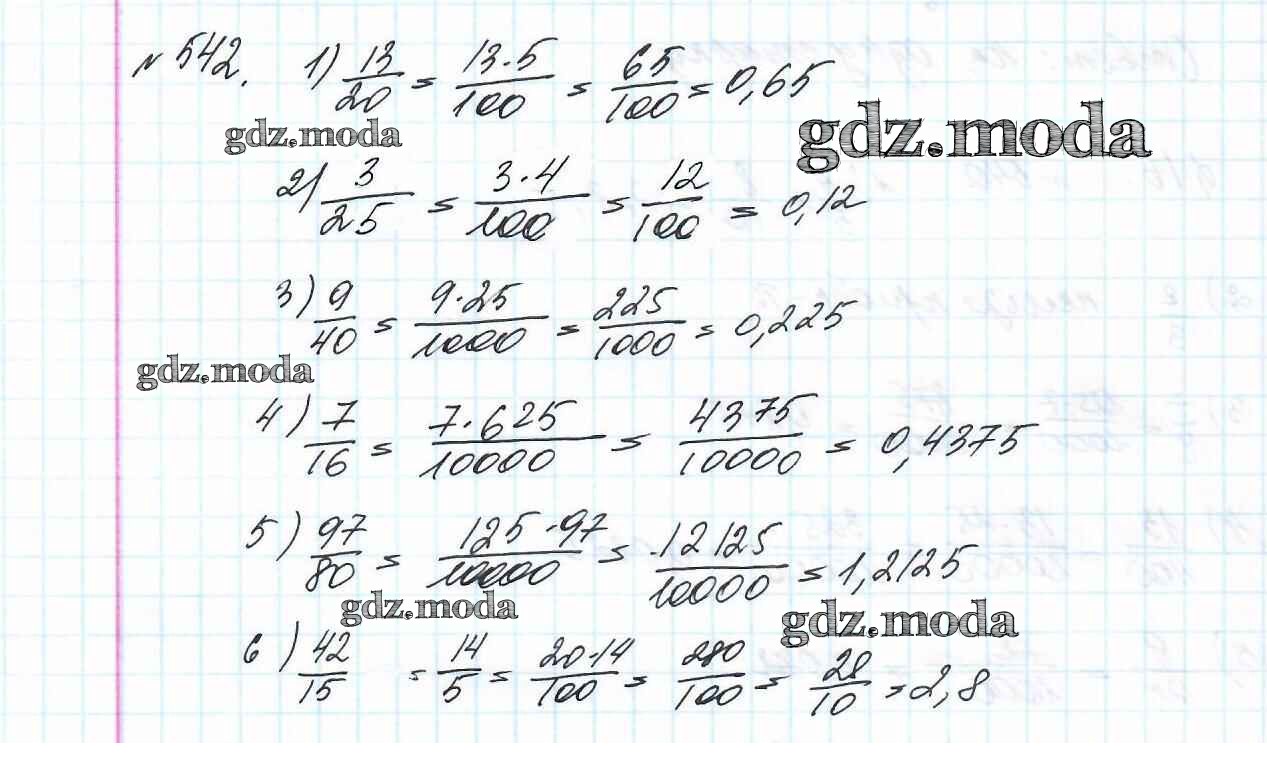 № 542. 1) 13/20 = 13·5/100 = 65/100 = 0,65
gdz.moda
gdz.moda
2) 3/25 = 3·4/100 = 12/100 = 0,12
3) 9/40 = 9·25/1000 = 225/1000 = 0,225
gdz.moda
4) 7/16 = 7·625/10000 = 4375/10000 = 0,4375
5) 97/80 = 125·97/10000 = 12125/10000 = 1,2125
gdz.moda
gdz.moda
6) 42/15 = 14/5 = 20·14/100 = 280/100 = 28/10 = 2,8